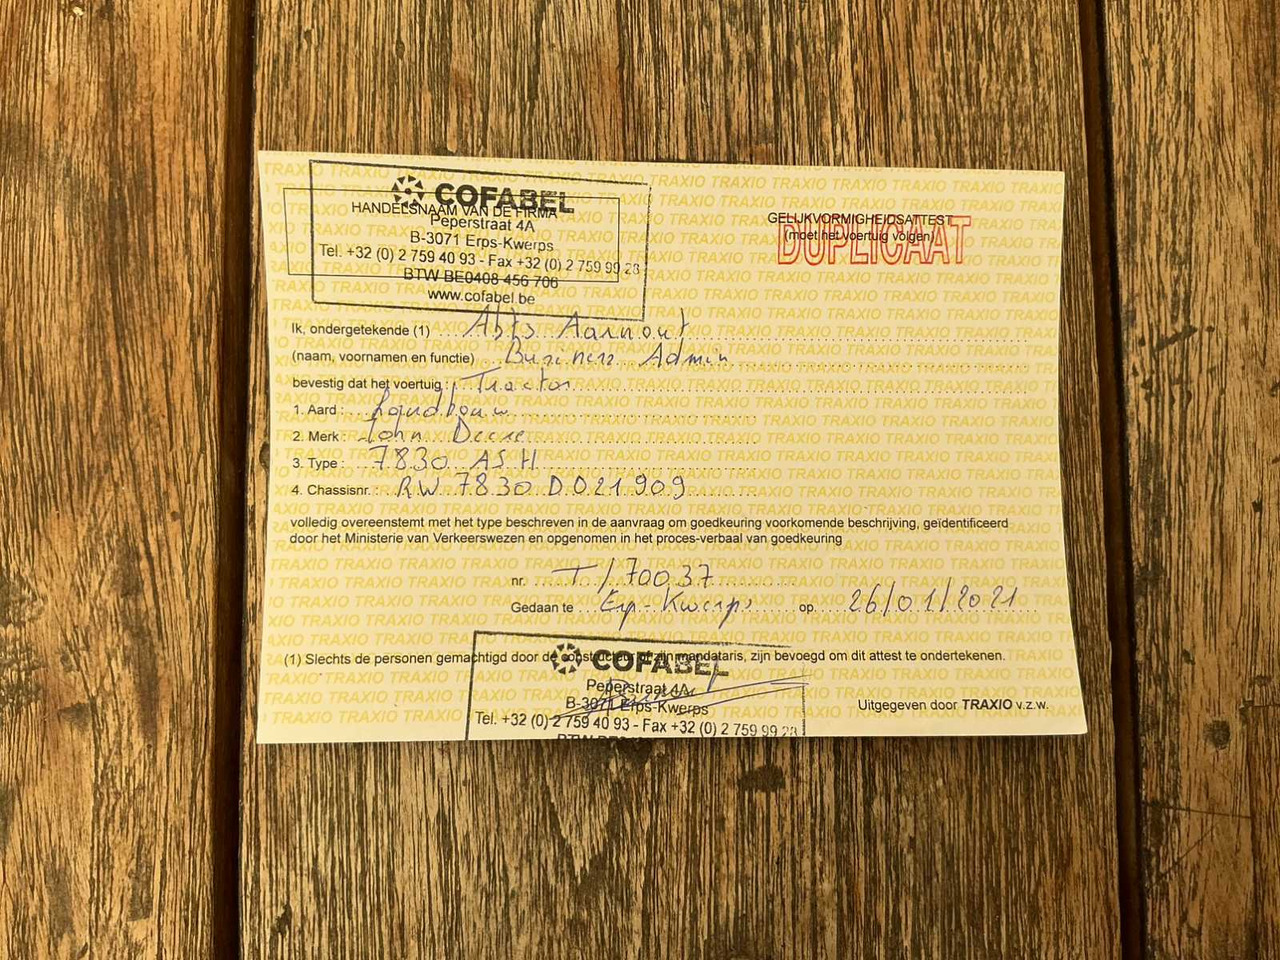 COFABEL
HANDELSNAAM VAN DE FIRMA
Peperstraat 4A
B-3071 Erps-Kwerps
Tel. +32 (0) 2 759 40 93 - Fax +32 (0) 2 759 99 28
BTW BE0408 456 706
www.cofabel.be
GELIJKVORMIGHEIDSATTEST
(moet het voertuig volgen)
DUPLICAAT
Ik, ondergetekende (1) Abts Aarnout
(naam, voornamen en functie) Business Admin
bevestig dat het voertuig : Tractor
1. Aard : Landbouw
2. Merk : John Deere
3. Type : 7830 AS H
4. Chassisnr. : RW 7830 D021909
volledig overeenstemt met het type beschreven in de aanvraag om goedkeuring voorkomende beschrijving, geïdentificeerd
door het Ministerie van Verkeerswezen en opgenomen in het proces-verbaal van goedkeuring
nr. T/70037
Gedaan te Erp-Kwerps op 26/01/2021
(1) Slechts de personen gemachtigd door de constructeur of zijn mandataris, zijn bevoegd om dit attest te ondertekenen.
COFABEL
Peperstraat 4A
B-3071 Erps-Kwerps
Tel. +32 (0) 2 759 40 93 - Fax +32 (0) 2 759 99 28
Uitgegeven door TRAXIO v.z.w.